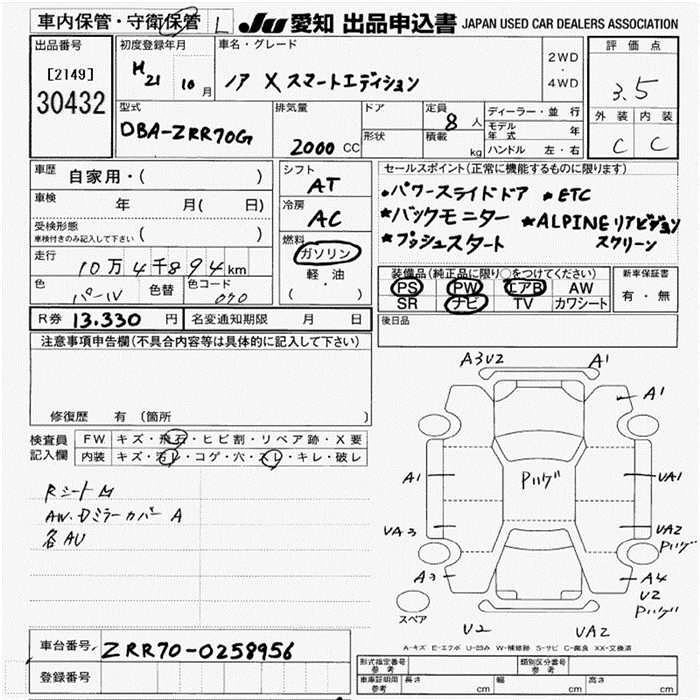 車内保管・守衛保管 L JU 愛知 出品申込書 JAPAN USED CAR DEALERS ASSOCIATION
出品番号 [2149] 30432
初度登録年月 H21 10月
車名・グレード ノア X スマートエディション
2WD・4WD
評価点 3.5
外装 C 内装 C
型式 DBA-ZRR70G
排気量 2000 CC
ドア
形状
定員 8人
積載 kg
ディーラー・並行
モデル年式 年
ハンドル 左・右
車歴 自家用・( )
車検 年 月( 日)
受検形態
車検付きのみ記入して下さい ( )
走行 10万4千894km
色 パール 色替 色コード 070
シフト AT
冷房 AC
燃料 ガソリン
軽油
( )
セールスポイント(正常に機能するものに限ります)
★パワースライドドア ★ETC
★バックモニター ★ALPINE リアビジョン
★プッシュスタート スクリーン
装備品(純正品に限り○をつけてください)
PS PW エアB AW
SR ナビ TV カワシート
新車保証書
有・無
R券 13.330 円 名変通知期限 月 日
後日品
注意事項申告欄(不具合内容等は具体的に記入して下さい)
修復歴 有(箇所 )
検査員記入欄
FW キズ・飛石・ヒビ割・リペア跡・X要
内装 キズ・汚レ・コゲ・穴・スレ・キレ・破レ
RシートM
AW.Dミラーカバー A
各AU
A3U2 A1
A1
A1 Pハゲ UA1
UA3 UA2
Pハゲ
A3 A4
U2
Pハゲ
スペア
U2 UA2
A-キズ E-エクボ U-凹み W-補修跡 S-サビ C-腐食 XX-交換済
車台番号 ZRR70-0258956
登録番号
形式指定番号 参考
類別区分番号 参考
車庫証明用 参考 長さ cm 幅 cm 高さ cm